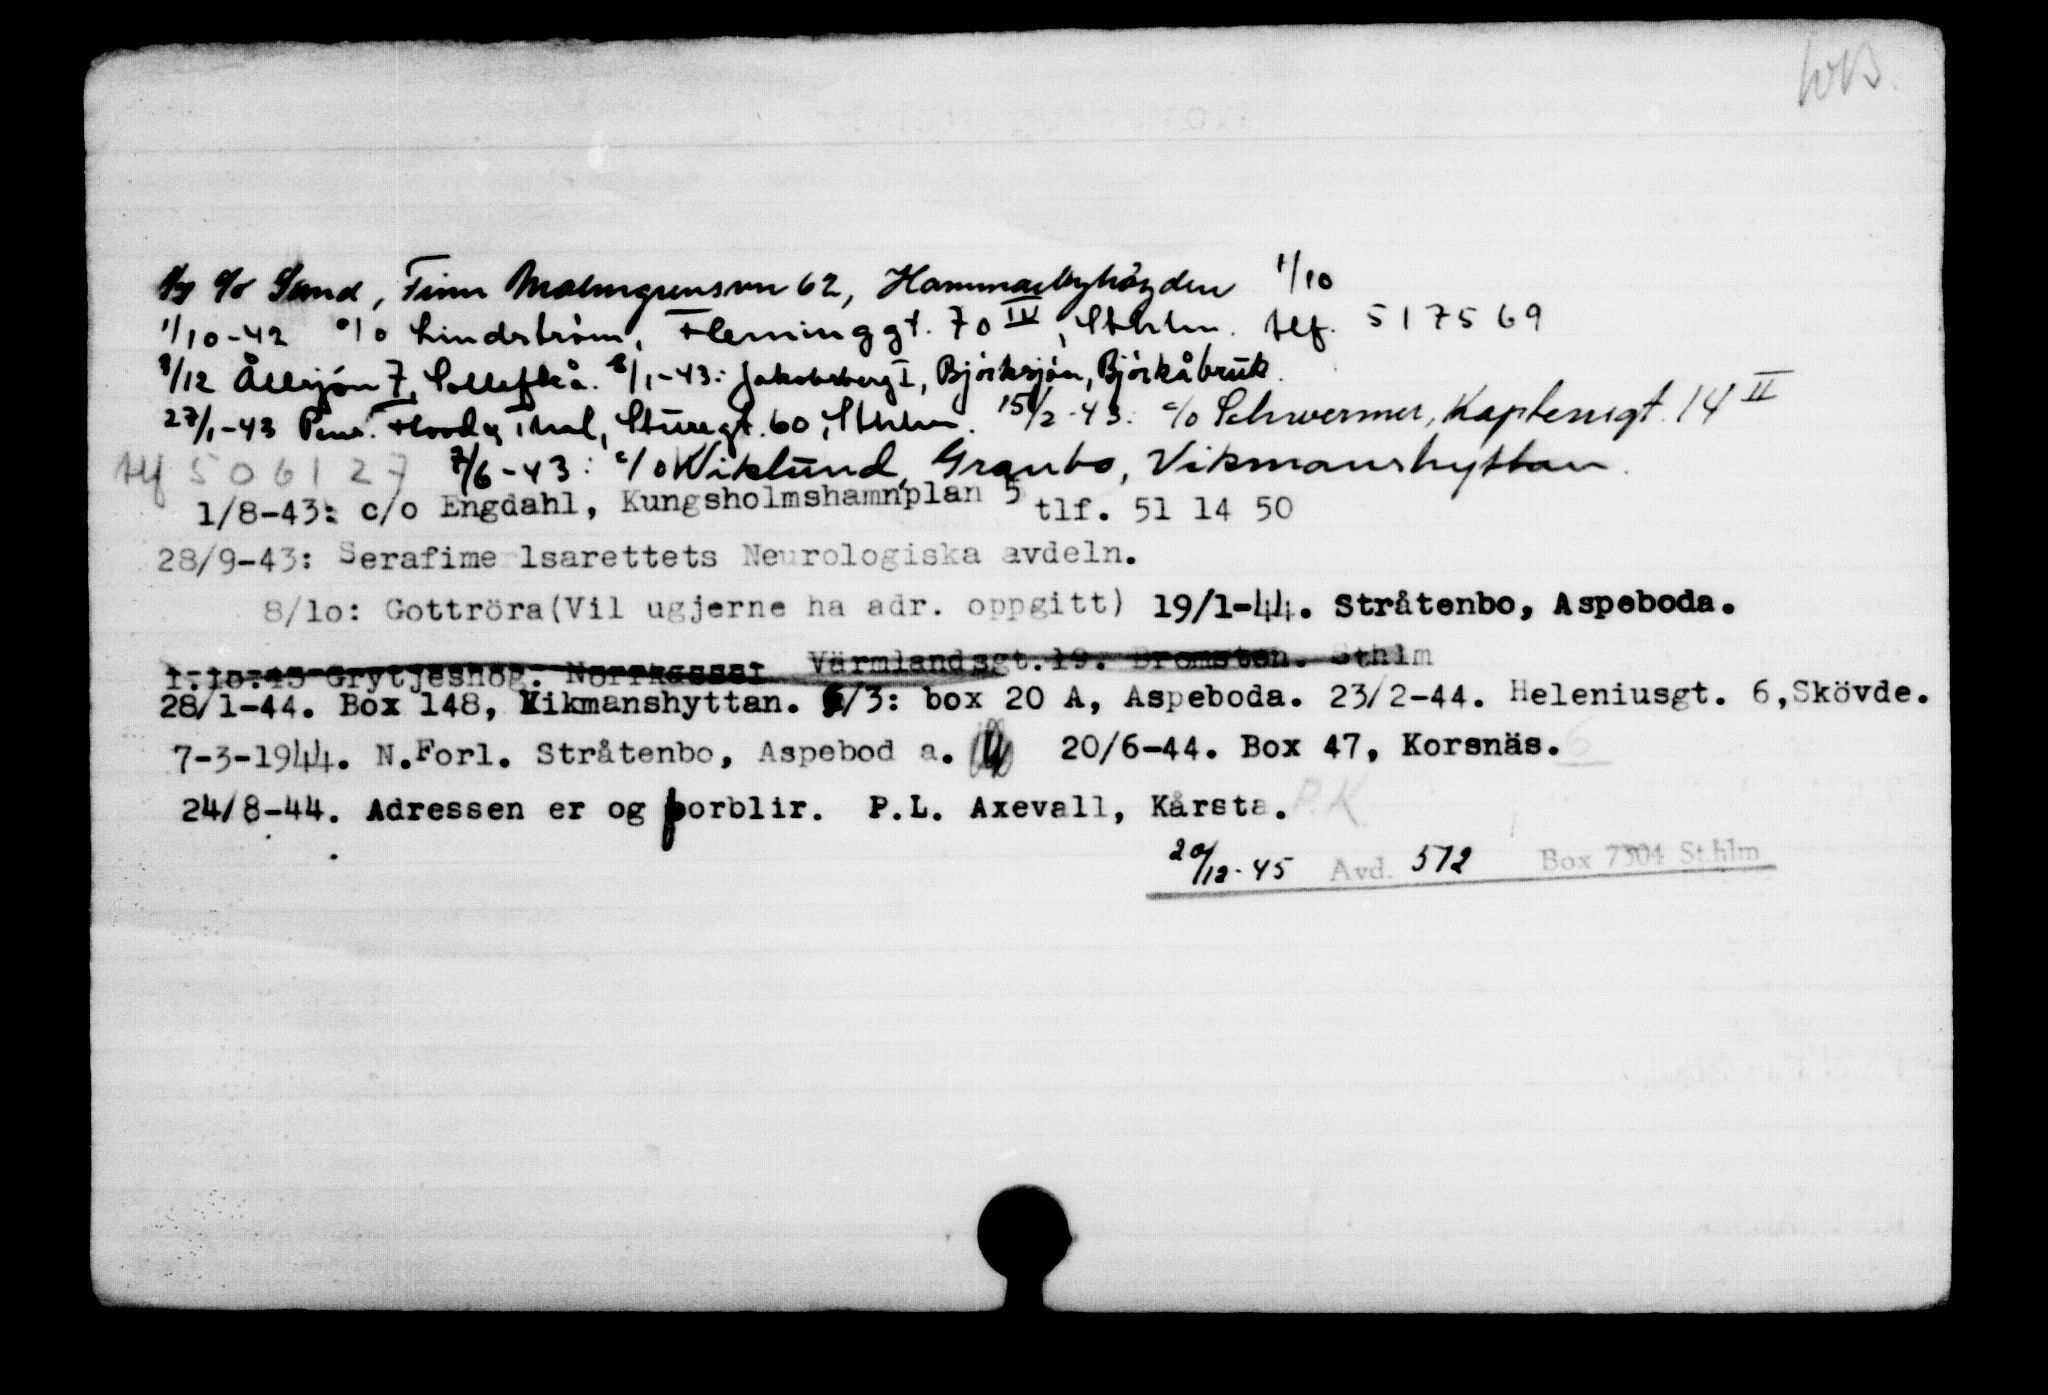 WB.
c/o Sund, Finn Malmgrensvn 62, Hammarbyhöyden 1/10
1/10-42 c/o Lindström, Fleminggt. 70 IV, Sthlm. tlf. 517569
8/12 Ållsjön 7, Solleftå. 8/1-43: Jakobsberg I, Björksjön, Björkåbruk.
27/1-43 Pens. Flood, Sturegt. 60, Sthlm. 15/2-43: c/o Schwermer, Kaptensgt. 14 II
tlf 506127 7/6-43: c/o Wiklund, Granbo, Vikmanshyttan.
1/8-43: c/o Engdahl, Kungsholmshamnplan 5 tlf. 51 14 50
28/9-43: Serafimerlsarettets Neurologiska avdeln.
8/lo: Gottröra(Vil ugjerne ha adr. oppgitt) 19/1-44. Stråtenbo, Aspeboda.
Värmlandsgt. 19. Bromsten. Sthlm
28/1-44. Box 148, Vikmanshyttan. 6/3: box 20 A, Aspeboda. 23/2-44. Heleniusgt. 6,Skövde.
7-3-1944. N.Forl. Stråtenbo, Aspebod a. 20/6-44. Box 47, Korsnäs.
24/8-44. Adressen er og forblir. P.L. Axevall, Kårsta. P.K
20/12-45 Avd. 512 Box 7304 St.hlm